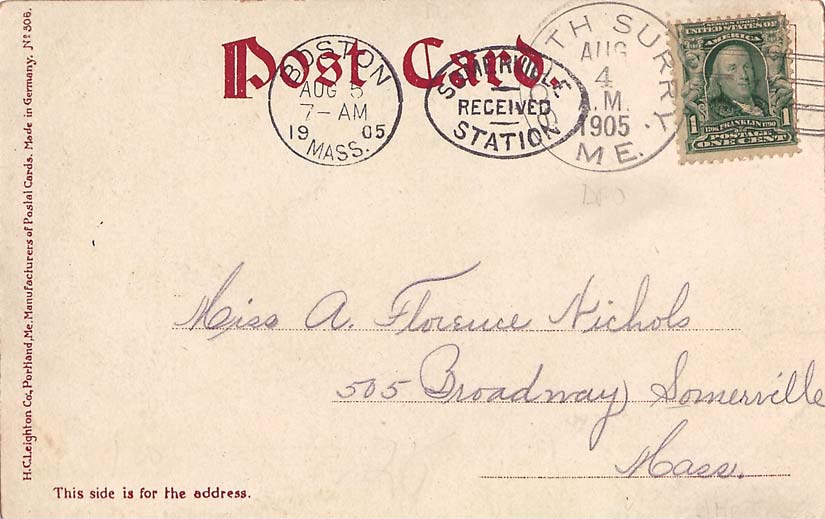 Post Card.
BOSTON
AUG 5
7-AM
19 05
MASS.
SOMERVILLE
RECEIVED
STATION
SOUTH SURRY.
AUG
4
A.M.
1905
ME.
SERIES 1902
UNITED STATES OF
AMERICA
1706 FRANKLIN 1790
1 1
POSTAGE
ONE CENT
DPO
Miss A. Florence Nichols
505 Broadway, Somerville
Mass.
This side is for the address.
H.C. Leighton Co., Portland, Me. Manufacturers of Postal Cards. Made in Germany. No 506.